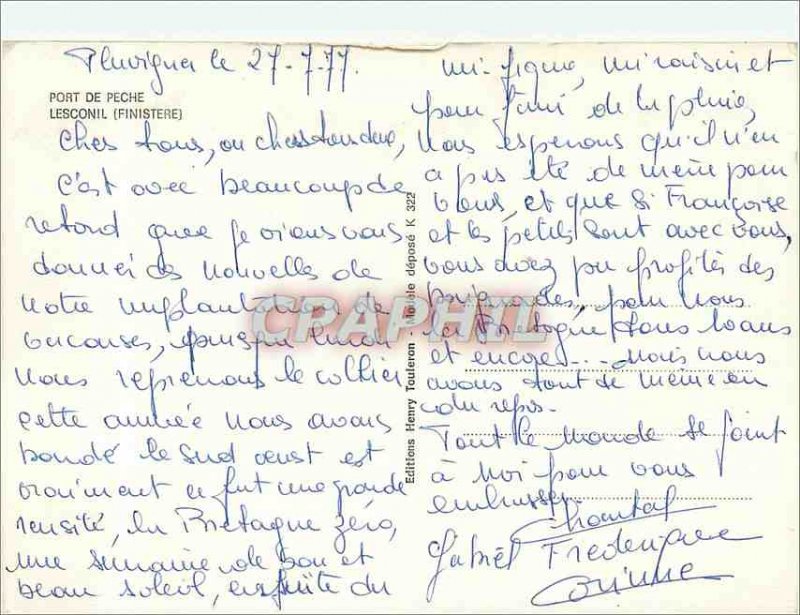 Pluvigner le 27-7-77.
PORT DE PECHE
LESCONIL (FINISTERE)
Chers tous, ou chers tous deux,
C'est avec beaucoup de
retard que je viens vous
donner des nouvelles de
notre implantation de
vacances, puisque lundi
nous reprenons le collier
cette année nous avons
le Sud ouest est
vraiment ce fut une grande
réussite, la Bretagne zéro,
une semaine de bon et
beau soleil, ensuite du
mi-figue, mi raisin et
pour fini de la pluie,
Nous esperons qu'il n'en
a pas été de même pour
vous, et que si Françoise
et les petits sont avec vous,
vous avez pu profiter des
baignades, pour nous
la Bretagne dans 10 ans
et encore... mais nous
avons tout de même eu
du repos.
Tout le monde se joint
à moi pour vous
embrasser.
Chantal
Gabriel Frédérique
Corinne
Editions Henry Touferon Modèle déposé K 322
CPAPHIL